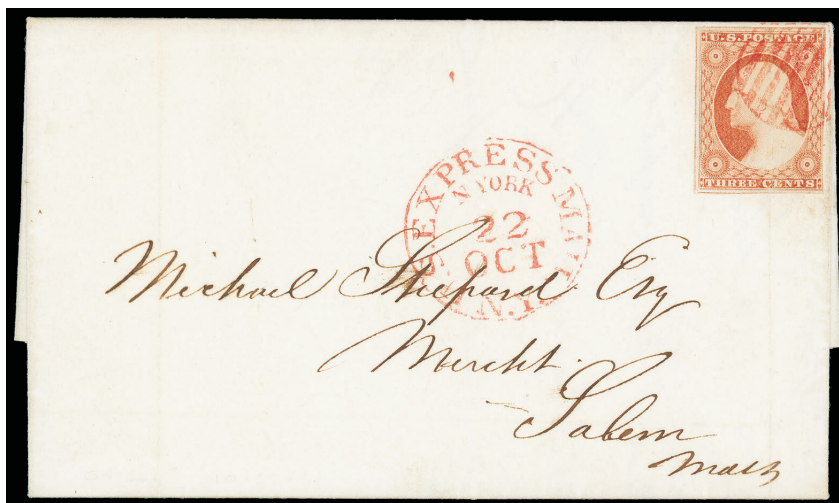 U.S. POSTAGE
THREE CENTS
U.S. EXPRESS MAIL
N.YORK
22
OCT
N.Y.
Michael Shepard Esq
Mercht.
Salem
Mass